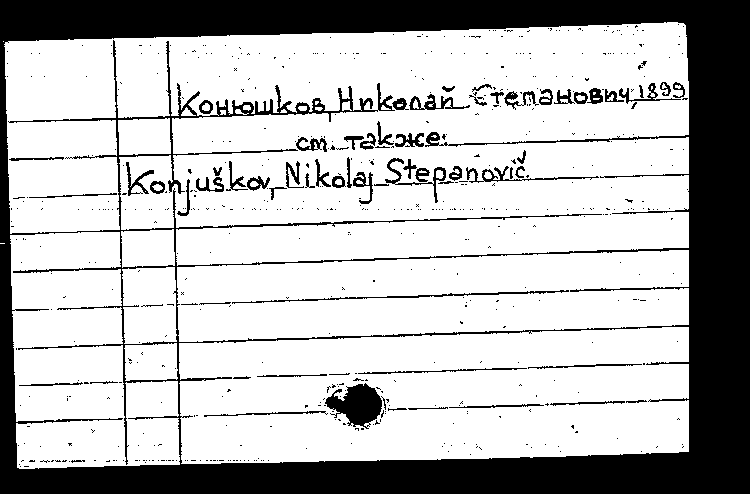 Конюшков, Николай Степанович, 1899
см. также:
Konjuškov, Nikolaj Stepanovič